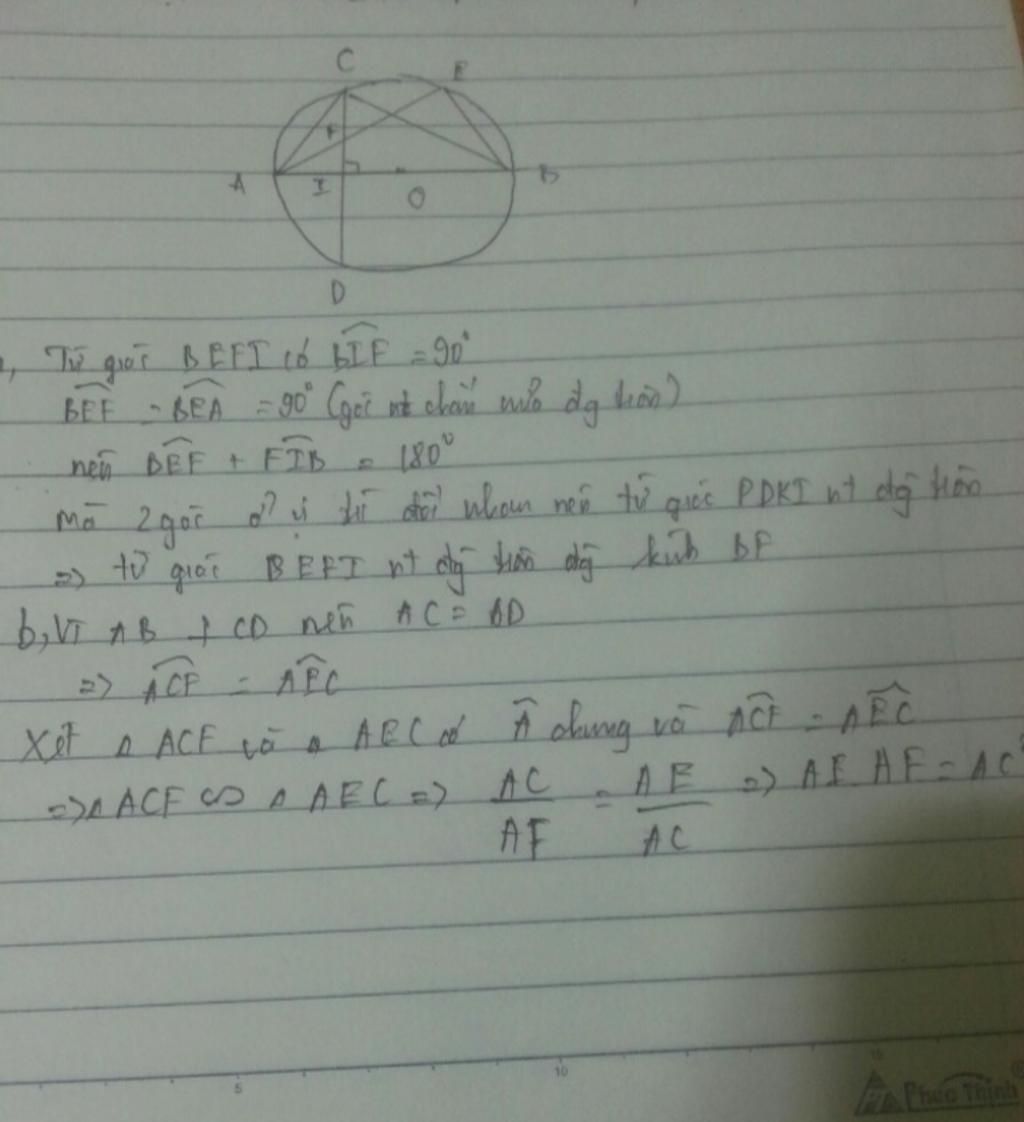 C E
F
A I O B
D
a, Tứ giác BEFI có BIF = 90°
BEF = BEA = 90° (góc nt chắn nửa đg tròn)
nên BEF + FIB = 180°
Mà 2 góc ở vị trí đối nhau nên tứ giác PDKI nt đg tròn
=> tứ giác BEFI nt đg tròn đg kính BF
b, Vì AB ⊥ CD nên AC = AD
=> ACF = AEC
Xét Δ ACF và Δ AEC có A chung và ACF = AEC
=> Δ ACF ∽ Δ AEC => AC/AF = AE/AC => AE AF = AC²
5 10 15
Phúc Thịnh®